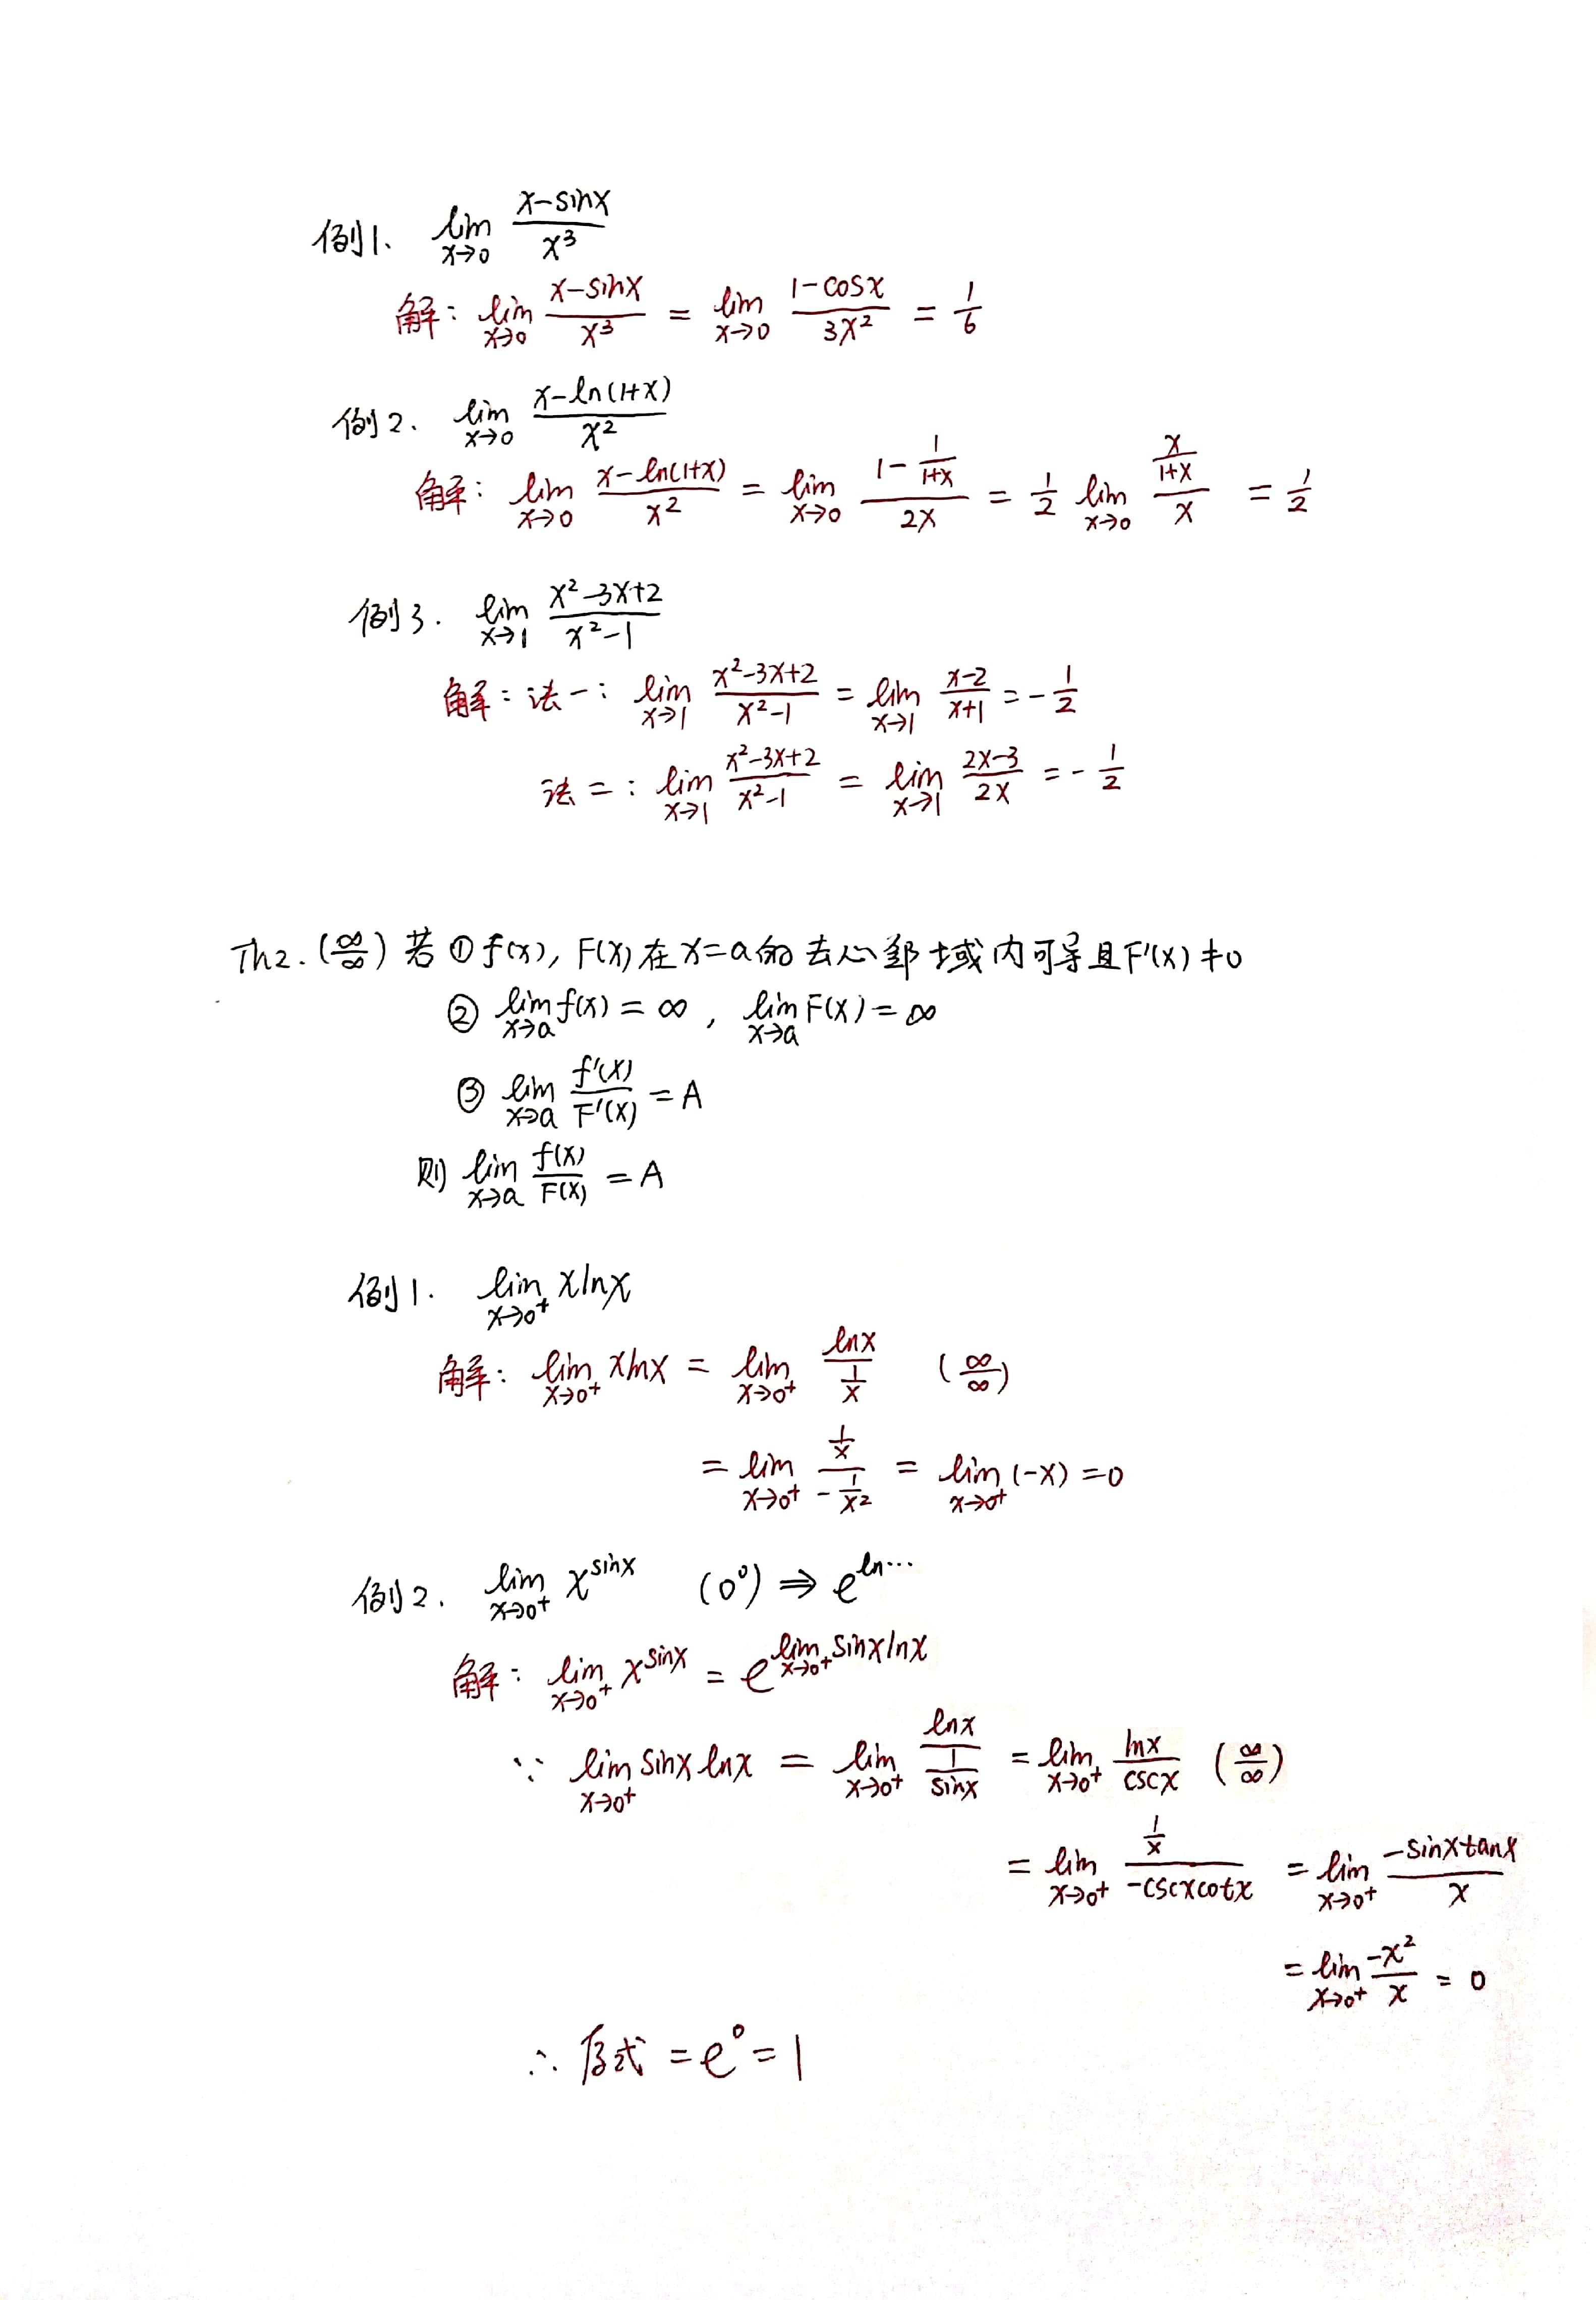 例1. $\lim_{x \to 0} \frac{x-\sin x}{x^3}$
解: $\lim_{x \to 0} \frac{x-\sin x}{x^3} = \lim_{x \to 0} \frac{1-\cos x}{3x^2} = \frac{1}{6}$
例2. $\lim_{x \to 0} \frac{x-\ln(1+x)}{x^2}$
解: $\lim_{x \to 0} \frac{x-\ln(1+x)}{x^2} = \lim_{x \to 0} \frac{1-\frac{1}{1+x}}{2x} = \frac{1}{2} \lim_{x \to 0} \frac{\frac{x}{1+x}}{x} = \frac{1}{2}$
例3. $\lim_{x \to 1} \frac{x^2-3x+2}{x^2-1}$
解: 法一: $\lim_{x \to 1} \frac{x^2-3x+2}{x^2-1} = \lim_{x \to 1} \frac{x-2}{x+1} = -\frac{1}{2}$
法二: $\lim_{x \to 1} \frac{x^2-3x+2}{x^2-1} = \lim_{x \to 1} \frac{2x-3}{2x} = -\frac{1}{2}$
Th2. ($\frac{\infty}{\infty}$) 若 ① $f(x)$, $F(x)$ 在 $x=a$ 的去心邻域内可导且 $F'(x) \neq 0$
② $\lim_{x \to a} f(x) = \infty$, $\lim_{x \to a} F(x) = \infty$
③ $\lim_{x \to a} \frac{f'(x)}{F'(x)} = A$
则 $\lim_{x \to a} \frac{f(x)}{F(x)} = A$
例1. $\lim_{x \to 0^+} x \ln x$
解: $\lim_{x \to 0^+} x \ln x = \lim_{x \to 0^+} \frac{\ln x}{\frac{1}{x}}$ ($\frac{\infty}{\infty}$)
$= \lim_{x \to 0^+} \frac{\frac{1}{x}}{-\frac{1}{x^2}} = \lim_{x \to 0^+} (-x) = 0$
例2. $\lim_{x \to 0^+} x^{\sin x}$ ($0^0$) $\Rightarrow e^{\ln \cdots}$
解: $\lim_{x \to 0^+} x^{\sin x} = e^{\lim_{x \to 0^+} \sin x \ln x}$
∵ $\lim_{x \to 0^+} \sin x \ln x = \lim_{x \to 0^+} \frac{\ln x}{\frac{1}{\sin x}} = \lim_{x \to 0^+} \frac{\ln x}{\csc x}$ ($\frac{\infty}{\infty}$)
$= \lim_{x \to 0^+} \frac{\frac{1}{x}}{-\csc x \cot x} = \lim_{x \to 0^+} \frac{-\sin x \tan x}{x}$
$= \lim_{x \to 0^+} \frac{-x^2}{x} = 0$
∴ 原式 $= e^0 = 1$